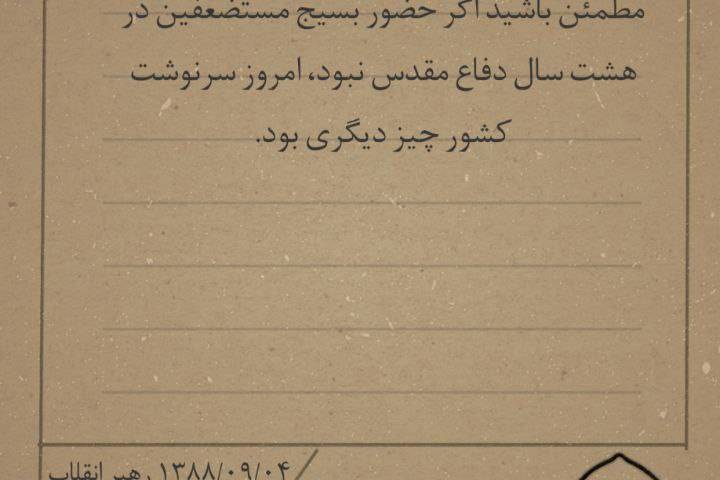 مطمئن باشید اگر حضور بسیج مستضعفین در
هشت سال دفاع مقدس نبود، امروز سرنوشت
کشور چیز دیگری بود.
رهبر انقلاب ۱۳۸۸/۰۹/۰۴